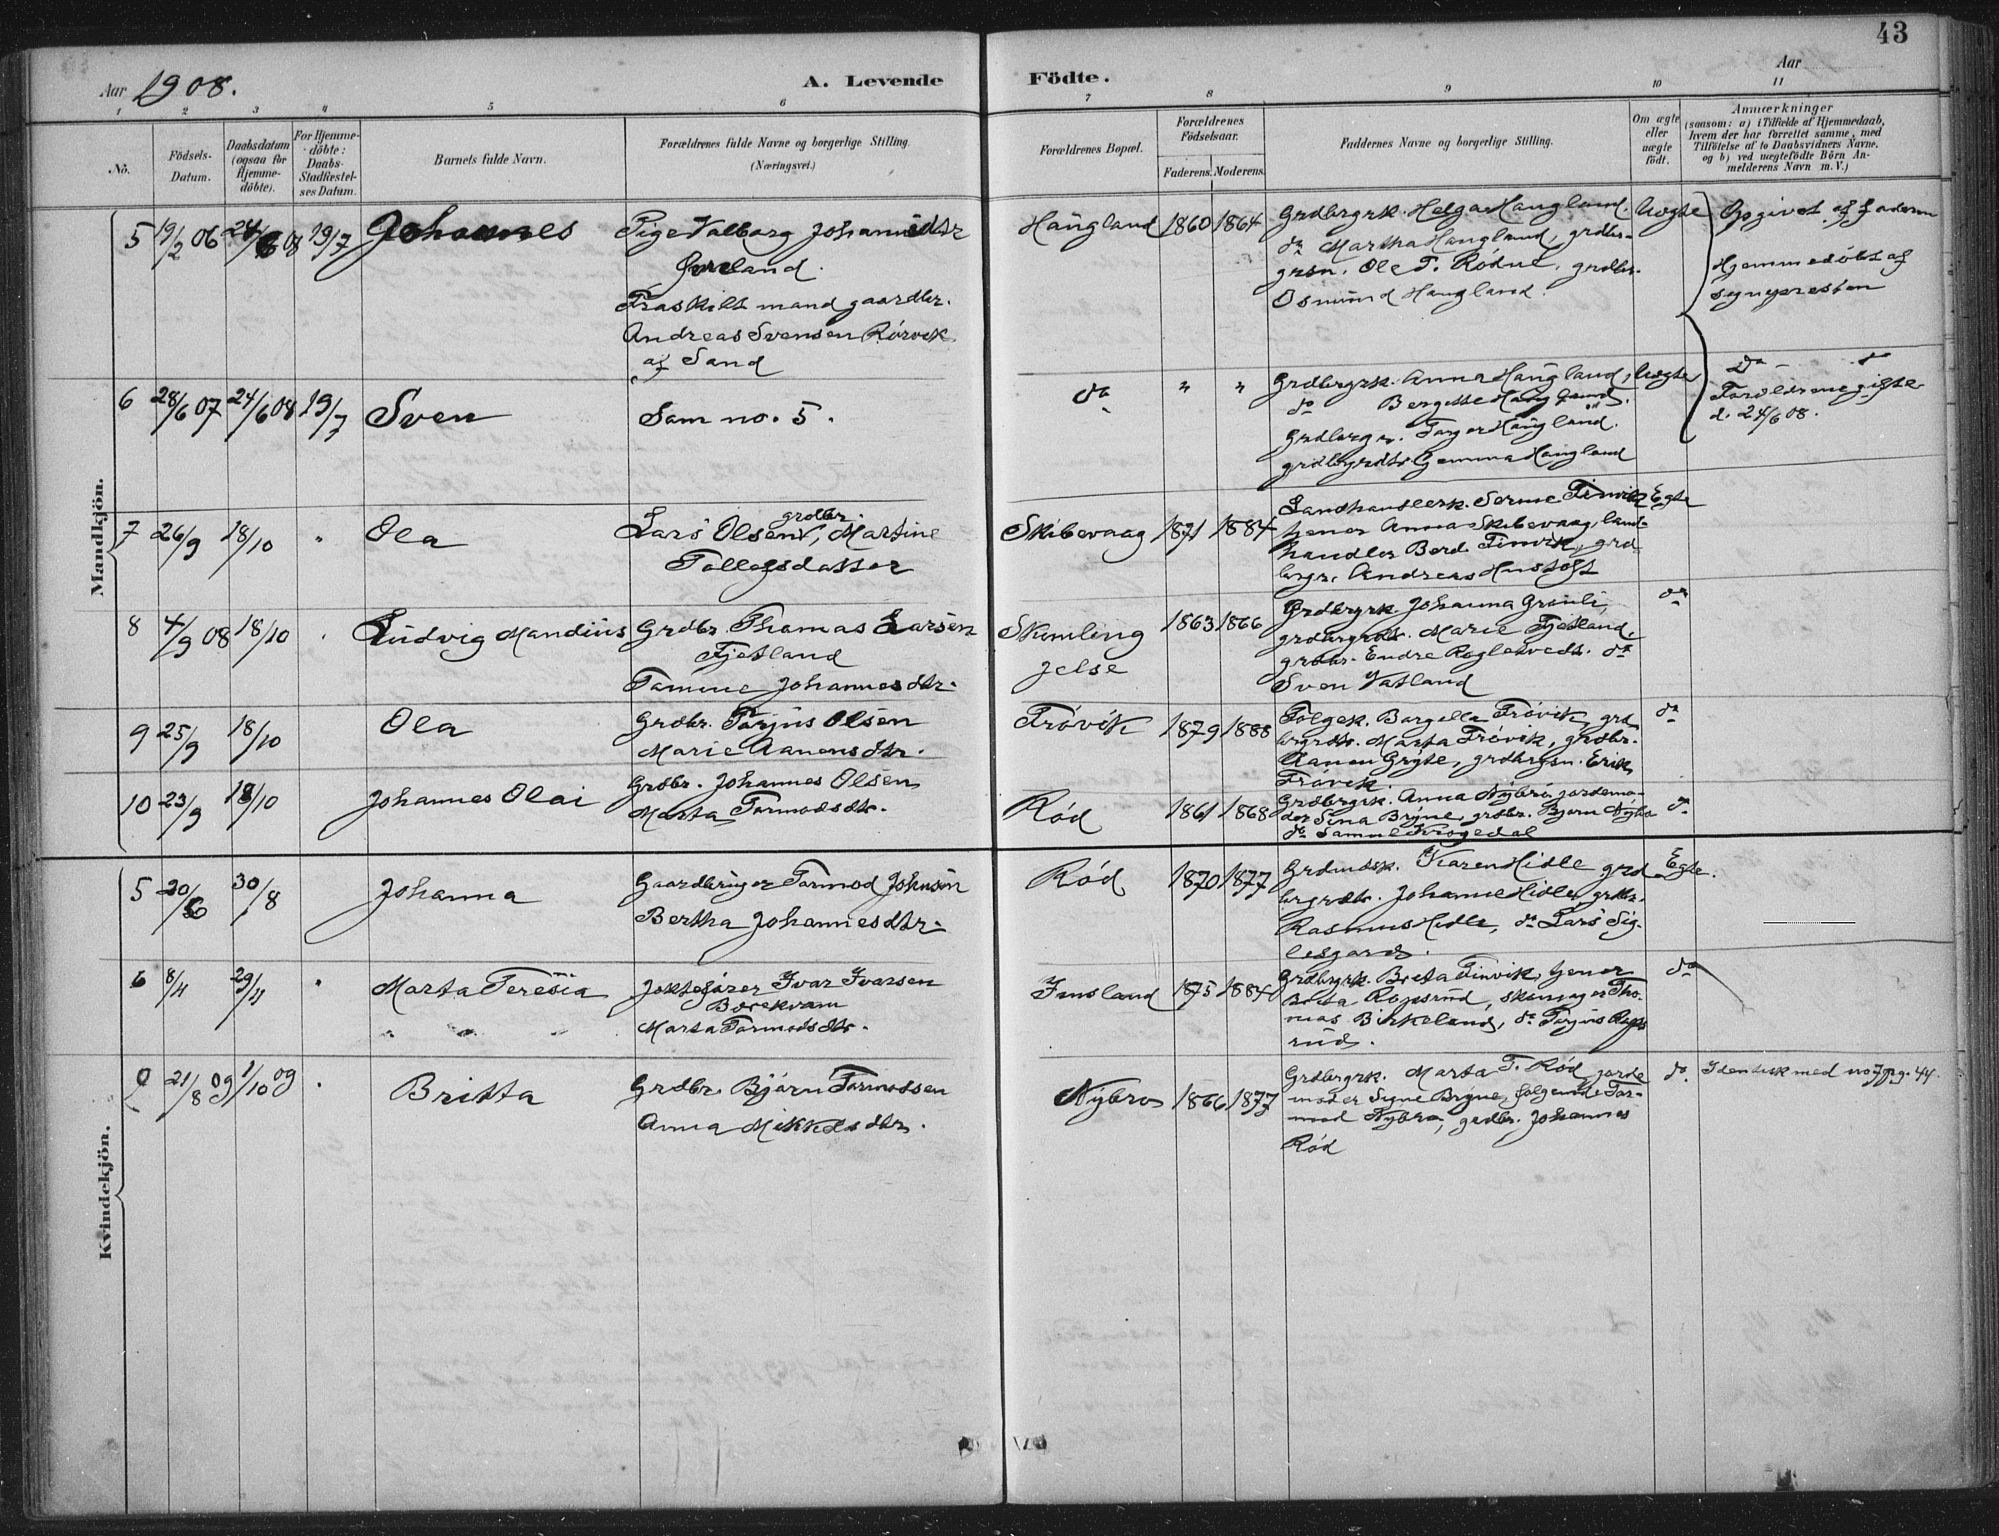 43
Aar 1908.
A. Levende Födte.
Aar
1 2 3 4 5 6 7 8 9 10 11
No.
Födsels-
Datum.
Daabsdatum
(ogsaa for
Hjemme-
döbte).
For Hjemme-
döbte:
Daabs-
Stadfæstel-
ses Datum.
Barnets fulde Navn.
Forældrenes fulde Navne og borgerlige Stilling.
(Næringsvei.)
Forældrenes Bopæl.
Forældrenes
Födselsaar.
Faderens. Moderens.
Faddernes Navne og borgerlige Stilling.
Om ægte
eller
uægte
födt.
Anmærkninger
(saasom: a) i Tilfælde af Hjemmedaab,
hvem der har forrettet samme, med
Tilföielse af to Daabsvidners Navne,
og b) ved uægtefödte Börn An-
melderens Navn m. V.)
Mandkjön.
5 19/2 06 24/6 08 19/7 Johannes
Pige Valborg Johannesdtr
Fraskilt mand gaardbr.
Andreas Svensen Rörvik
af Sand
Haugland 1860 1864
Grdbrgrk. Helga Haugland.
do Martha Haugland, grdbr-
grsn. Ole T. Rödne, grdbr.
Osmund Haugland.
Uægte
Opgivet af faderen
Hjemmedöbt af
sognepresten
6 28/6 07 24/6 08 19/7 Sven
Som no. 5.
do " "
Grdbrgrk. Anna Haugland,
do Bergitte Haugland.
Grdbrgr. Torger Haugland.
grdbrgrdtr Gemma Haugland
Uægte
Do - do
Foreldrene gifte
d. 24/6 08.
7 26/9 18/10 " Ola
Lars Olsen, grdbr. Martine
Tollefsdatter
Skibevaag 1871 1884
Landhandlerk. Serine Tinvik
tjener Anna Skibevaag, land-
handler Berd. Tinvik, grd
brgr. Andreas Hustoft
Egte
8 4/9 08 18/10 " Ludvig Mandius
Grdbr. Thomas Larsen
Fjetland
Tamine Johannesdtr.
Skimling
Jelse
1863 1866
Grdbrgrk. Johanna Gronli,
grdbrgrdtr. Marie Fjetland,
grdbr. Endre Roglestvedt. do
Sven Vatland
do
9 25/9 18/10 Ola
Grdbr. Torjus Olsen
Marie Aanensdtr.
Frövik 1879 1888
Folgek. Borgella Frövik, grd
brgrdtr. Marta Frövik, grdbr.
Aanen Gryte, grdbrgsn. Erik
Frövik.
do
10 23/9 18/10 Johannes Olai
Grdbr. Johannes Olsen
Marta Tormodsdtr.
Röd 1861 1868
Grdbrgrk. Anna Nybru, jordemo-
der Sina Bryne, grdbr. Bjorn Nybru
do Samuel Krogedal
do
Kvindekjön.
5 20/6 30/8 Johanna
Gaardbruger Tormod Johnsen
Bertha Johannesdtr.
Röd 1870 1877
Grdmdsk. Karen Hidle grd
brgrdtr. Johanne Hidle, grdbr.
Rasmus Hidle, do Lars Sig-
Egte.
6 8/4 29/4 " Marta Teresia
Jektefører Ivar Ivarsen
Borekvam
Marta Tormodsdtr.
Imsland 1875 1884
Grdbrgrk. Brita Tinvik, tjener
Brita Ropsrud, skomager Tho-
mas Birkeland, do Torjus Rops
rud.
do
21/8 09 1/10 09 " Britta
Grdbr. Bjørn Tormodsen
Anna Mikkelsdtr.
Nybru 1866 1877
Grdbrgrk. Marta T. Röd jorde
moder Signe Bryne, folgemd. Tor-
mod Nybru, grdbr. Johannes
Röd
do.
Identisk med no 7 pg. 44.